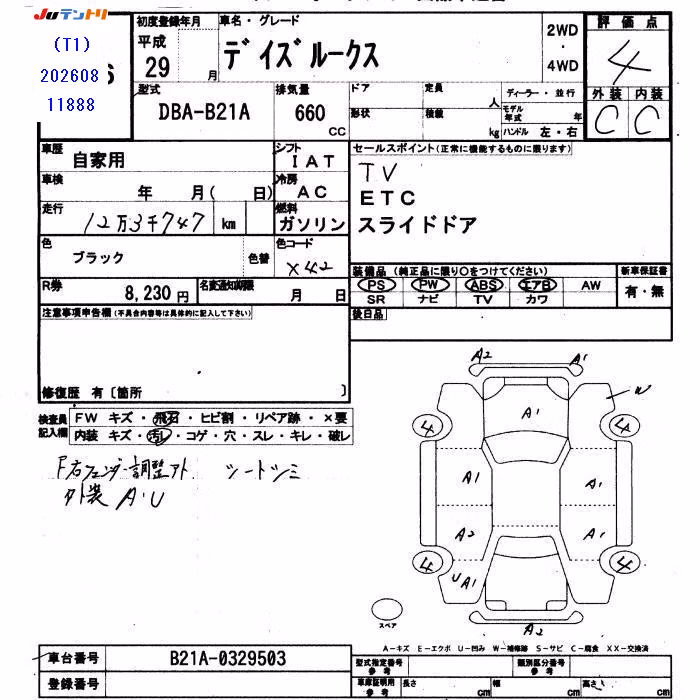 JUテントリ
(T1)
202608
11888
S
初度登録年月
平成
29 月
車名・グレード
デイズルークス
2WD
・
4WD
評価点
4
外装 内装
C C
型式
DBA-B21A
排気量
660
CC
ドア
形状
定員
人
積載
kg
ディーラー・並行
モデル年式 年
ハンドル 左・右
車歴
自家用
シフト
IAT
車検
年 月( 日)
冷房
AC
走行
12万3千747 km
燃料
ガソリン
色
ブラック
色替
色コード
X42
R券
8,230円
名変通知期限
月 日
セールスポイント(正常に機能するものに限ります)
TV
ETC
スライドドア
装備品(純正品に限り○をつけてください)
PS PW ABS エアB AW
SR ナビ TV カワ
新車保証書
有・無
後日品
注意事項申告欄(不具合内容等は具体的に記入して下さい)
修復歴 有〔箇所 〕
検査員記入欄
FW キズ・飛石・ヒビ割・リペア跡・×要
内装 キズ・汚レ・コゲ・穴・スレ・キレ・破レ
F右フェンダー調整アト シートシミ
外装 A・U
A2 A1
W
A1
4 4
A1 A1
A2 A1
4 4
U A1
A2
スペア
A-キズ E-エクボ U-凹み W-補修跡 S-サビ C-腐食 XX-交換済
車台番号
B21A-0329503
登録番号
型式指定番号
参考
類別区分番号
参考
車庫証明用
参考
長さ cm
幅 cm
高さ cm